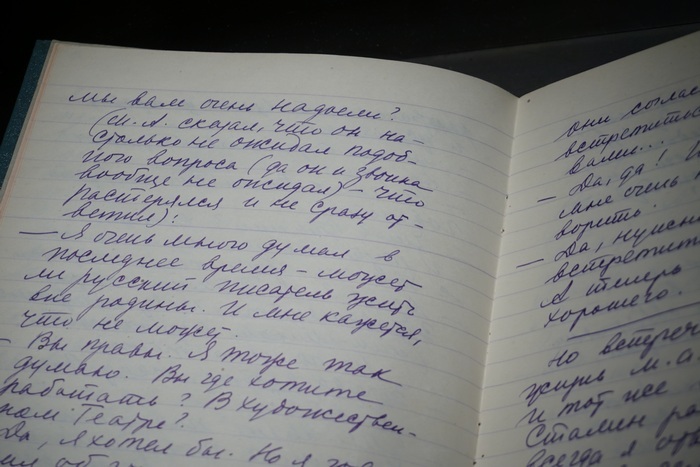 мы вам очень надоели?
(М. А. сказал, что он на-
столько не ожидал подоб-
ного вопроса (да он и звонка
вообще не ожидал) – что
растерялся и не сразу от-
ветил):
— Я очень много думал в
последнее время – может
ли русский писатель жить
вне родины. И мне кажется,
что не может.
– Вы правы. Я тоже так
думаю. Вы где хотите
работать? В Художествен-
ном Театре?
Да, я хотел бы. Но я
они соглас
встретитьс
вами...
— Да, да!
мне очень
ворить.
— Да, нужно
встретит
А теперь
хорошего.
Но встреч
жизнь М. А.
и тот же
Сталин ра
всегда я